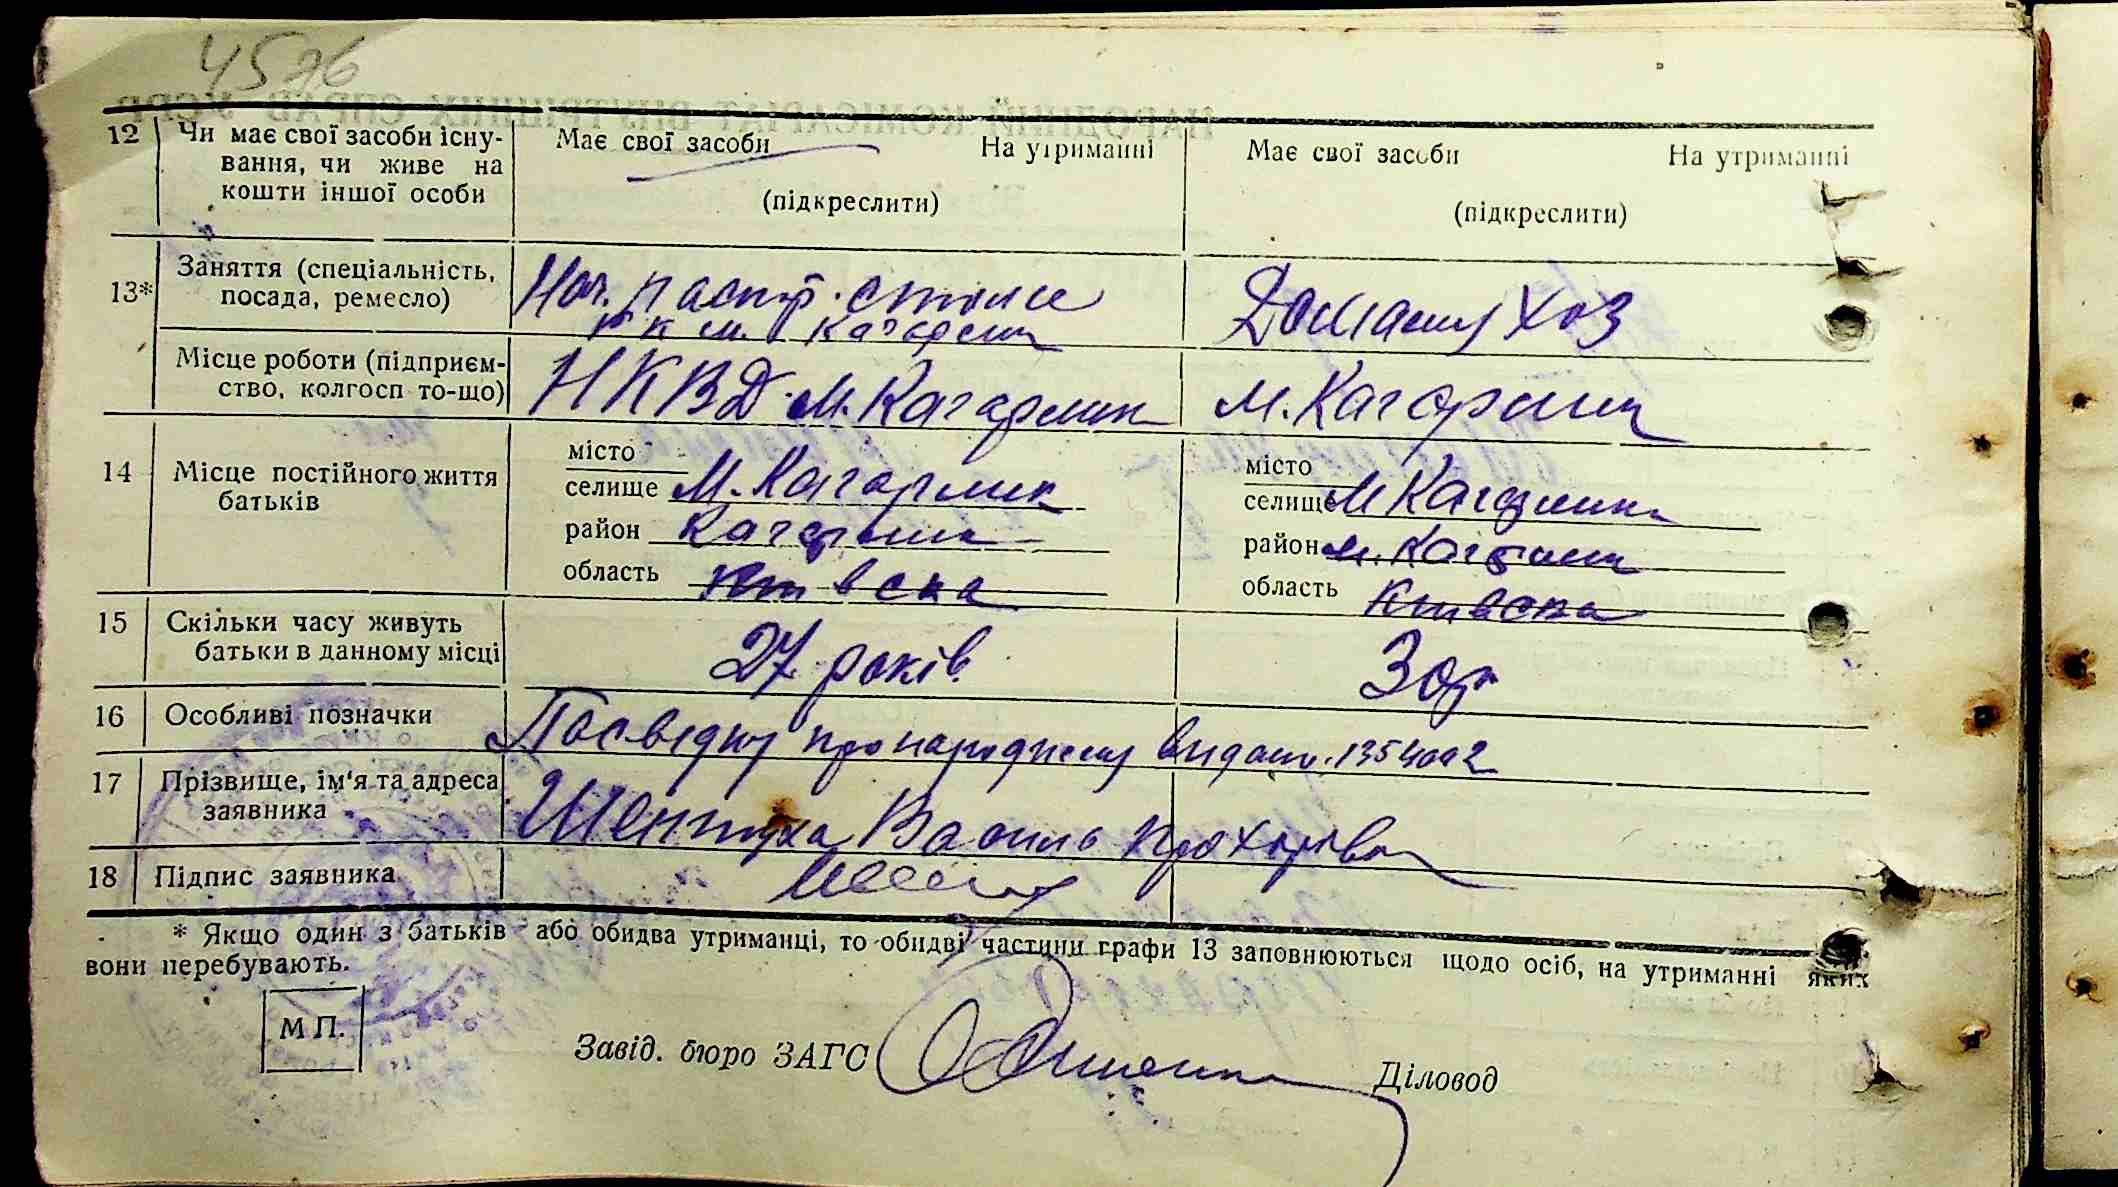 4576
12 Чи має свої засоби існу-
вання, чи живе на
кошти іншої особи
Має свої засоби На утриманні
(підкреслити)
Має свої засоби На утриманні
(підкреслити)
13* Заняття (спеціальність,
посада, ремесло)
Нач. пасп. стола
м. Кагарлик
Домашн хоз
Місце роботи (підприєм-
ство, колгосп то-що)
НКВД м. Кагарлик
м. Кагарлик
14 Місце постійного життя
батьків
місто
селище М. Кагарлик
район Кагарлик
область Київська
місто
селище М Кагарлик
район м. Кагарлик
область Київська
15 Скільки часу живуть
батьки в данному місці
27 років
30р
16 Особливі позначки
Посвідку про народження видано. 1354092
17 Прізвище, ім'я та адреса
заявника
Шептуха Василь Прохорович
18 Підпис заявника
* Якщо один з батьків або обидва утриманці, то обидві частини графи 13 заповнюються щодо осіб, на утриманні яких
вони перебувають.
М П.
Завід. бюро ЗАГС
Діловод